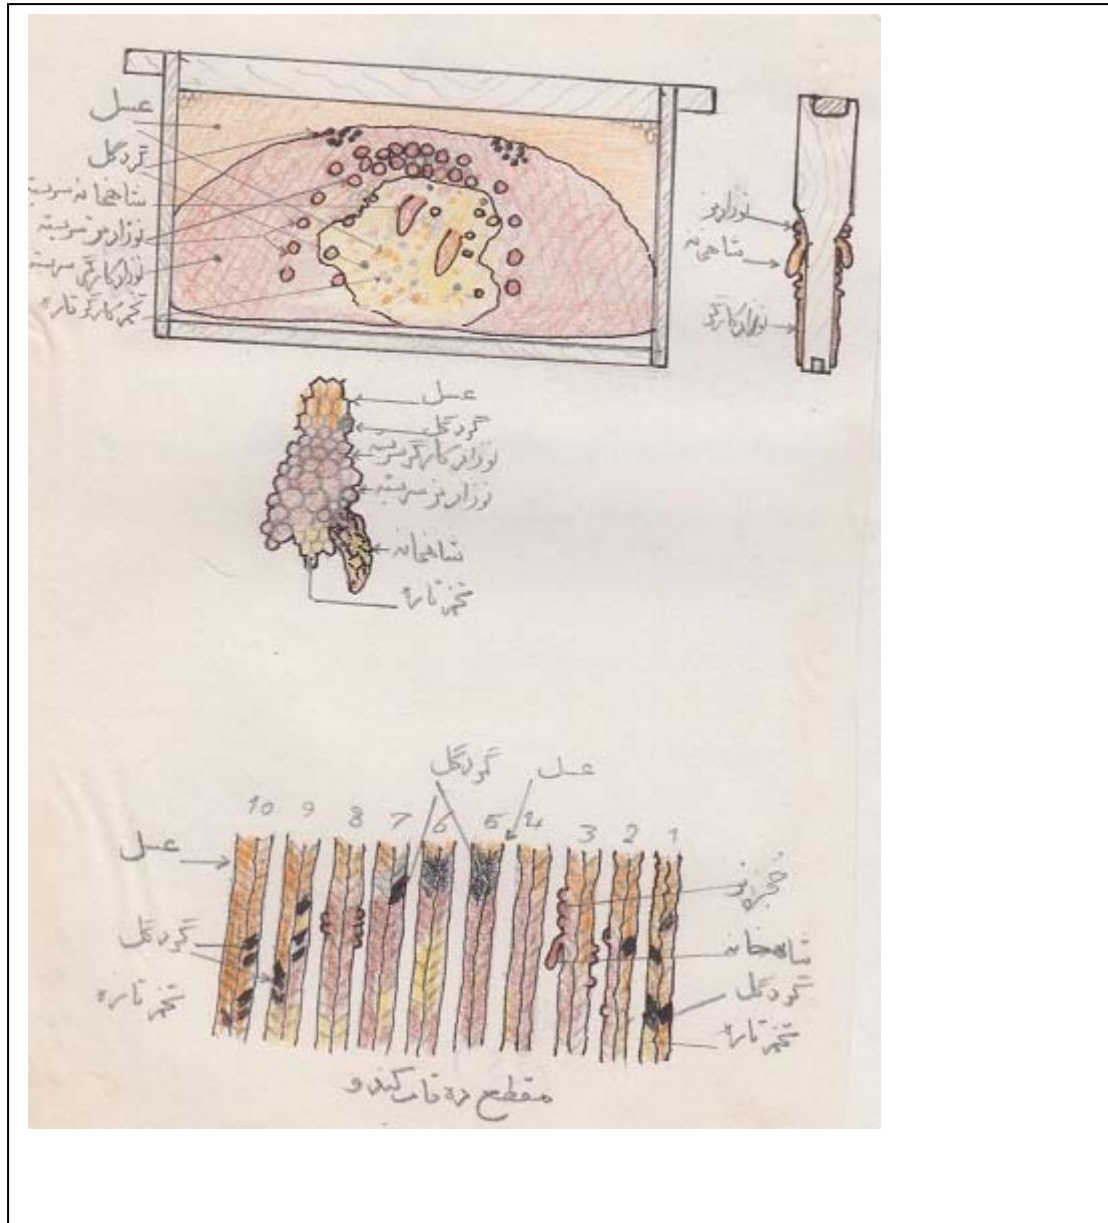 عسل
گردگل
شاهخانه سربسته
نوزاد نر سربسته
نوزاد کارگر سربسته
تخم کارگر تازه
نوزاد نر
شاهخانه
نوزاد کارگر
عسل
گردگل
نوزاد کارگر سربسته
نوزاد نر سربسته
شاهخانه
تخم تازه
گردگل
عسل
10 9 8 7 6 5 4 3 2 1
عسل
گردگل
تخم تازه
حجره نر
شاهخانه
گردگل
تخم تازه
مقطع ده قاب کندو